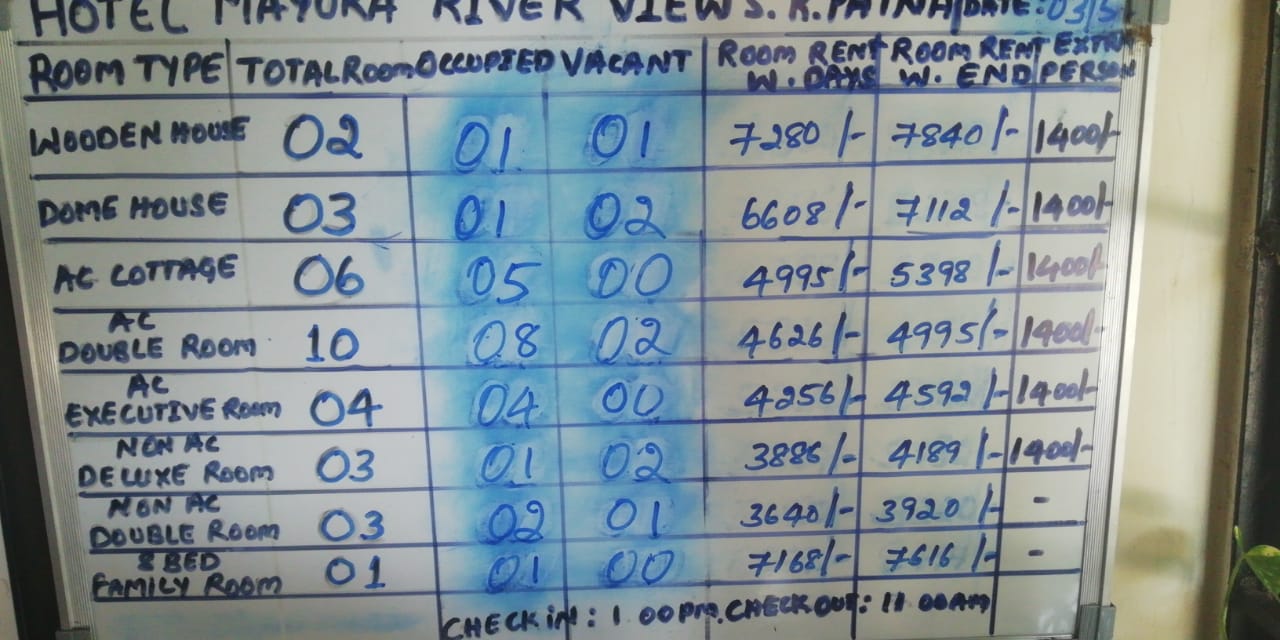 HOTEL MAYURA RIVER VIEW S. R. PATNA DATE: 03/5
ROOM TYPE TOTAL Room OCCUPIED VACANT ROOM RENT W. DAYS ROOM RENT W. END EXTRA PERSON
WOODEN HOUSE 02 01 01 7280/- 7840/- 1400/-
DOME HOUSE 03 01 02 6608/- 7112/- 1400/-
AC COTTAGE 06 05 00 4995/- 5398/- 1400/-
AC DOUBLE ROOM 10 08 02 4626/- 4995/- 1400/-
AC EXECUTIVE Room 04 04 00 4256/- 4592/- 1400/-
NON AC DELUXE ROOM 03 01 02 3886/- 4189/- 1400/-
NON AC DOUBLE ROOM 03 02 01 3640/- 3920/- -
8 BED FAMILY ROOM 01 01 00 7168/- 7616/- -
CHECK in: 1.00 Pm. CHECK OUT: 11.00AM